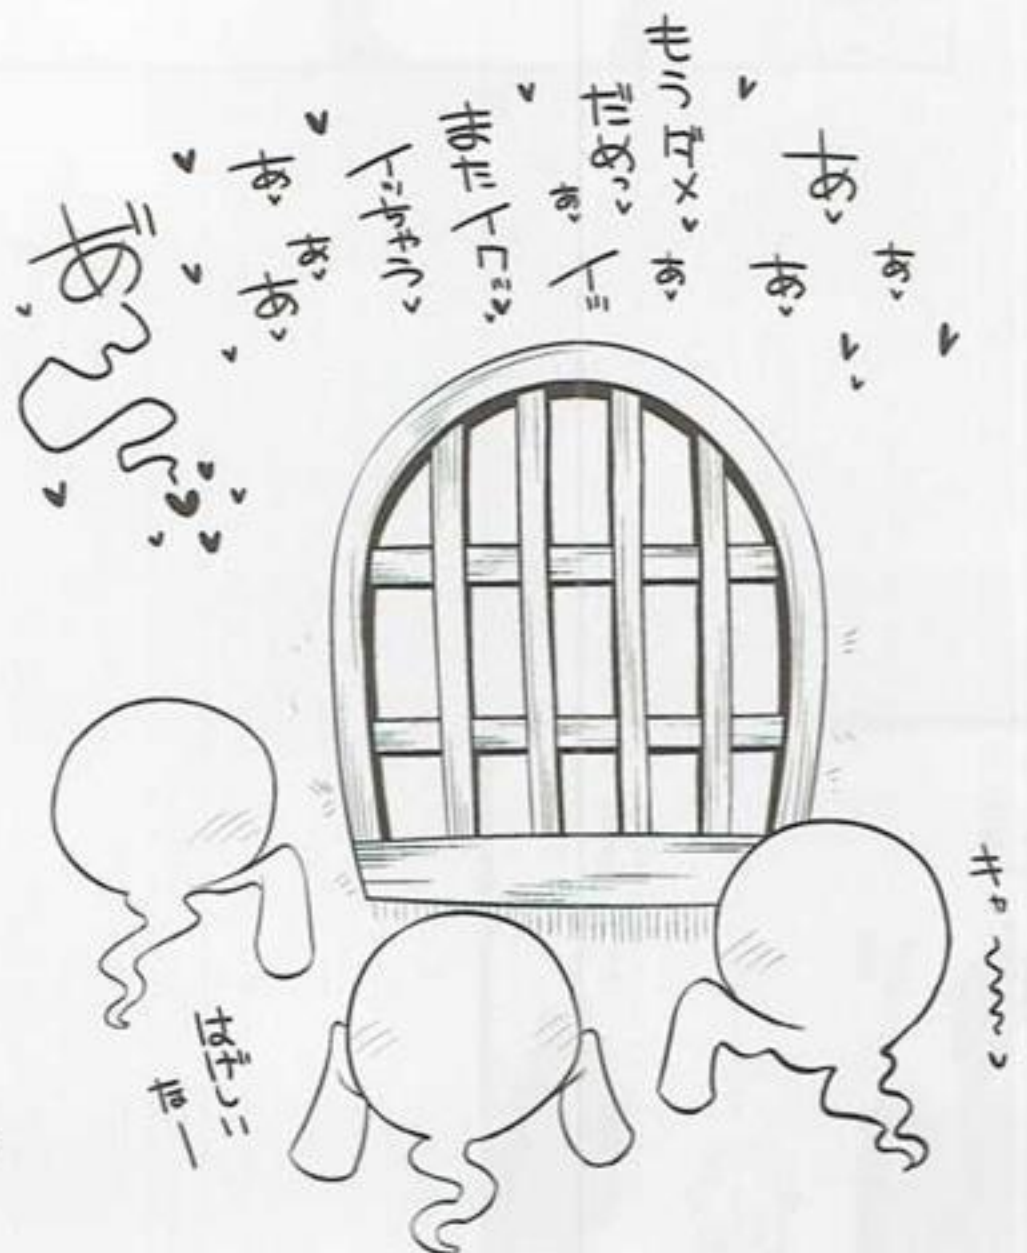 あ♥
あ♥
あ♥
もうダメ♥
あ♥
だめっ♥
あ♥
イ
またイクッ♥
イッちゃう♥
あ♥
あ♥
あ♥
あ゛～
キャ～♥
はげしい
なー